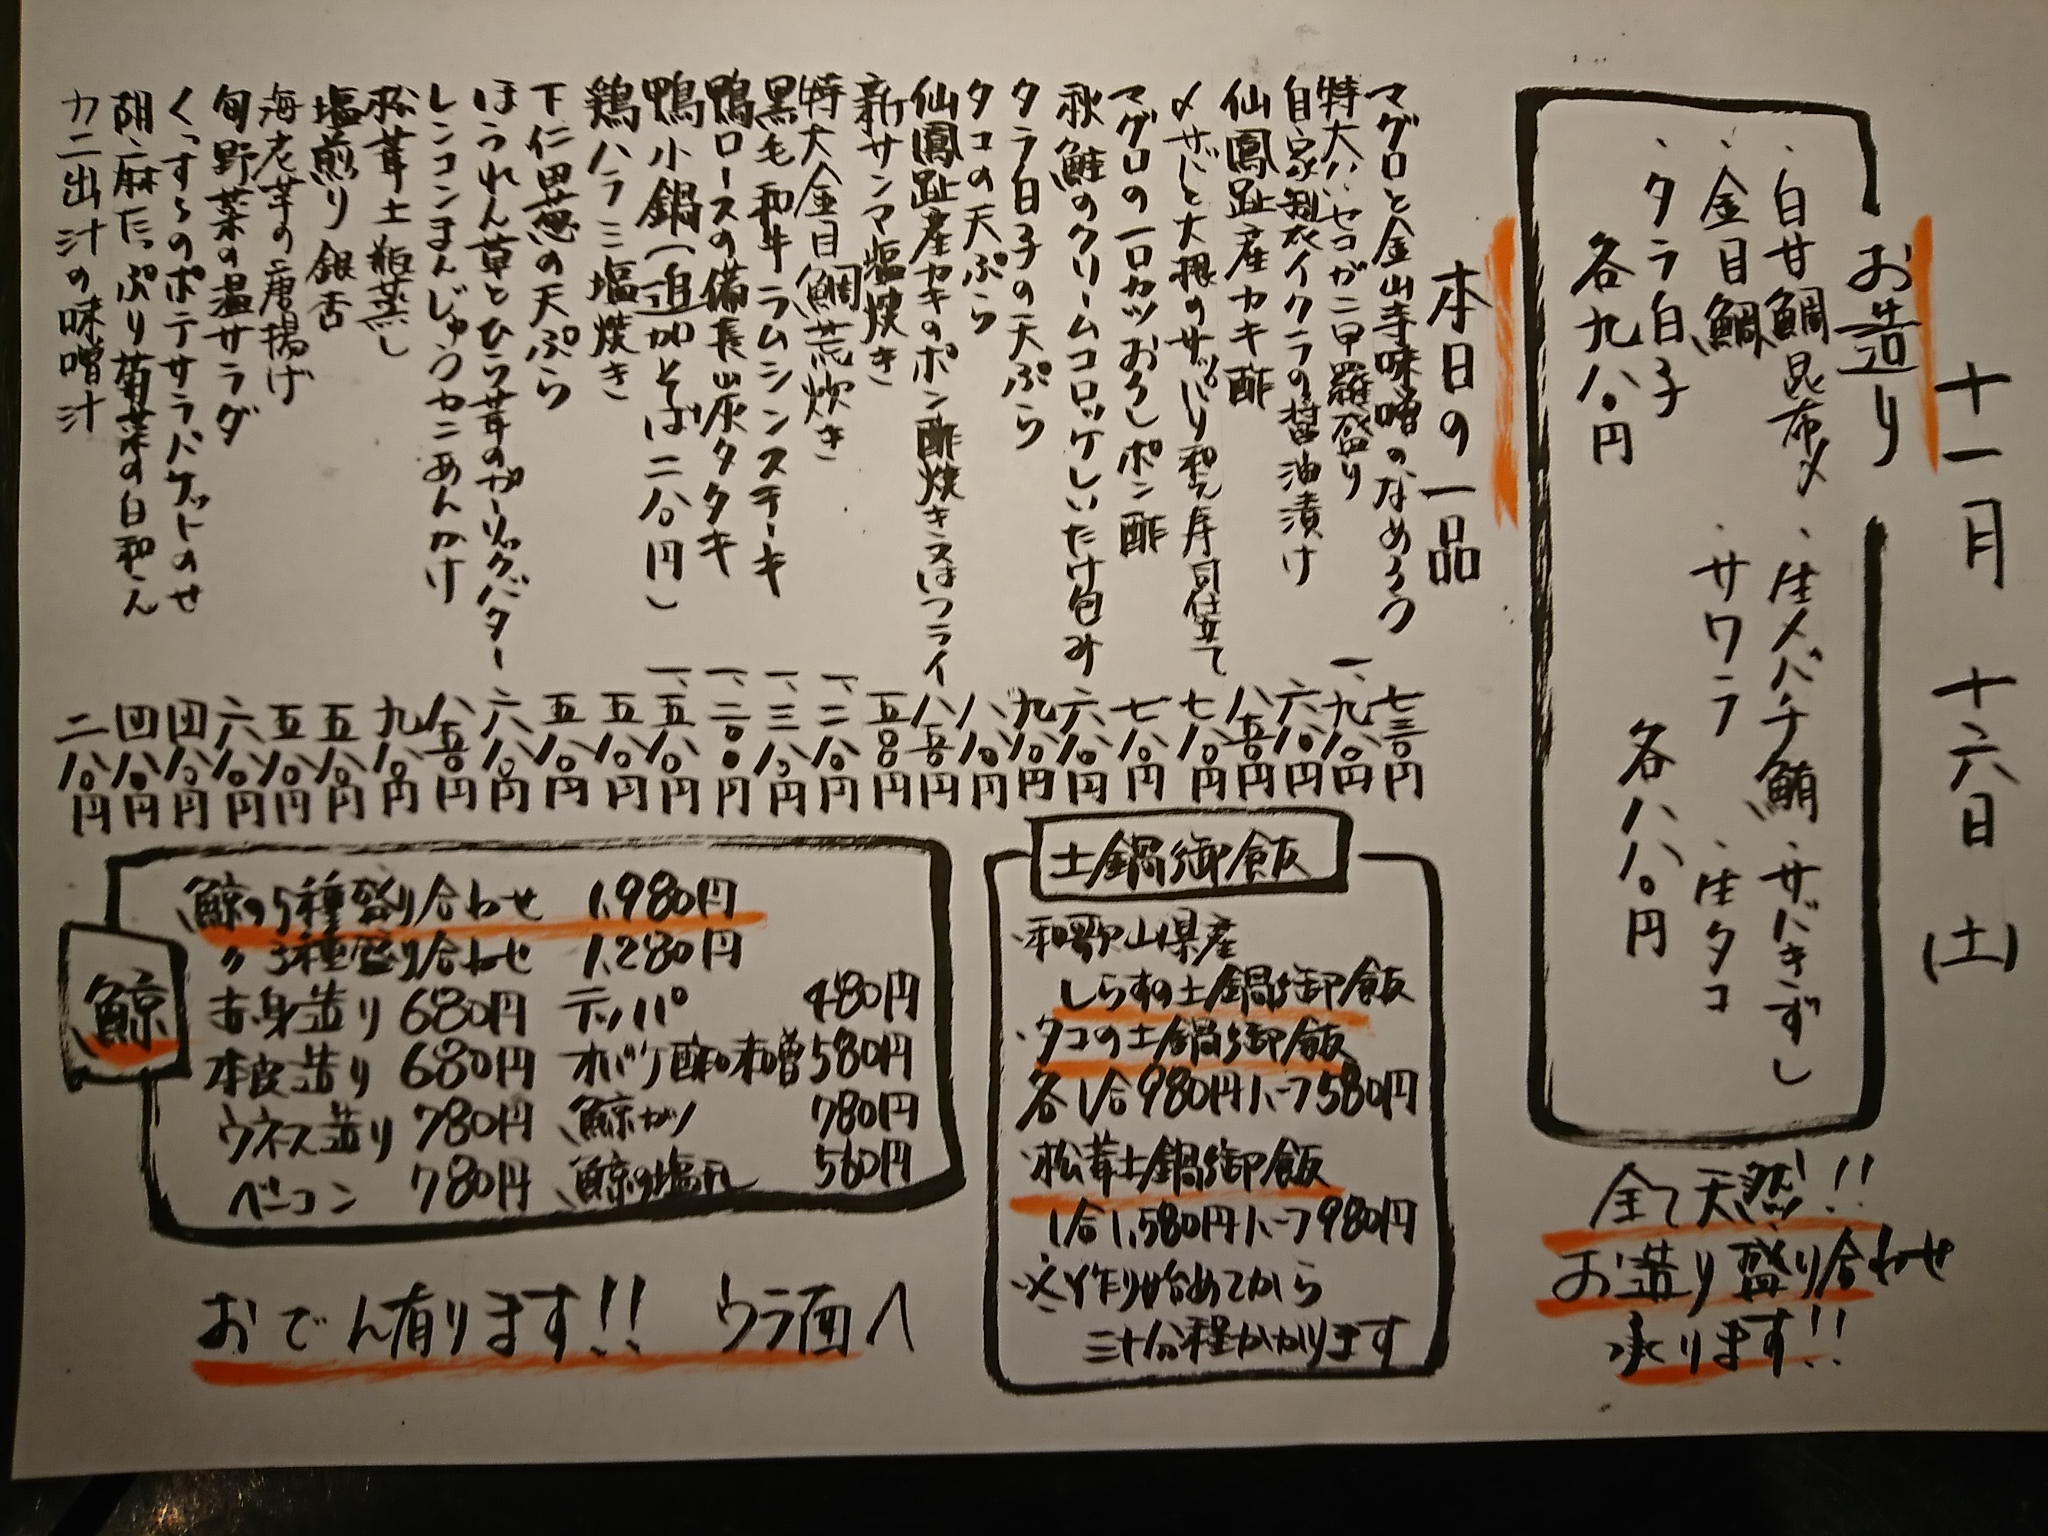 十一月 十六日 (土)
お造り
・白甘鯛昆布〆 ・生メバチ鮪 ・サバきずし
・金目鯛 ・サワラ ・生タコ
・タラ白子 各八八〇円
各九八〇円
全て天然!!
お造り盛り合わせ
承ります!!
本日の一品
マグロと金山寺味噌のなめろう 七三〇円
特大バセコガニ甲羅盛り 一、九八〇円
自家製イクラの醤油漬け 六八〇円
仙鳳趾産カキ酢 八五〇円
〆サバと大根のサッパリ和え寿司仕立て 七八〇円
マグロの一口カツおろしポン酢 七八〇円
秋鮭のクリームコロッケしいたけ包み 六八〇円
タラ白子の天ぷら 九八〇円
タコの天ぷら 八八〇円
仙鳳趾産カキのポン酢焼き又はフライ 八五〇円
新サンマ塩焼き 五八〇円
特大金目鯛荒炊き 一、二八〇円
黒毛和牛ラムシンステーキ 一、三八〇円
鴨ロースの備長炭タタキ 一、二〇〇円
鴨小鍋(追加そば二八〇円) 一、五八〇円
鶏ハラミ塩焼き 五八〇円
下仁田葱の天ぷら 五八〇円
ほうれん草とひら茸のガーリックバター 六八〇円
レンコンまんじゅうカニあんかけ 八五〇円
松茸土瓶蒸し 九八〇円
塩煎り銀杏 五八〇円
海老芋の唐揚げ 五八〇円
旬野菜の温サラダ 六八〇円
くっすらのポテサラバケットのせ 四八〇円
胡麻たっぷり菊菜の白和え 四八〇円
カニ出汁の味噌汁 二八〇円
土鍋御飯
・和歌山県産
しらすの土鍋御飯
・タコの土鍋御飯
各1合980円ハーフ580円
・松茸土鍋御飯
1合1,580円ハーフ980円
・※作り始めてから
三十分程かかります
鯨
鯨の5種盛り合わせ 1,980円
〃3種盛り合わせ 1,280円
赤身造り 680円 テッパ 480円
本皮造り 680円 オバケ酢味噌 580円
ウネス造り 780円 鯨カツ 780円
ベーコン 780円 鯨の塩 560円
おでん有ります!! ウラ面へ